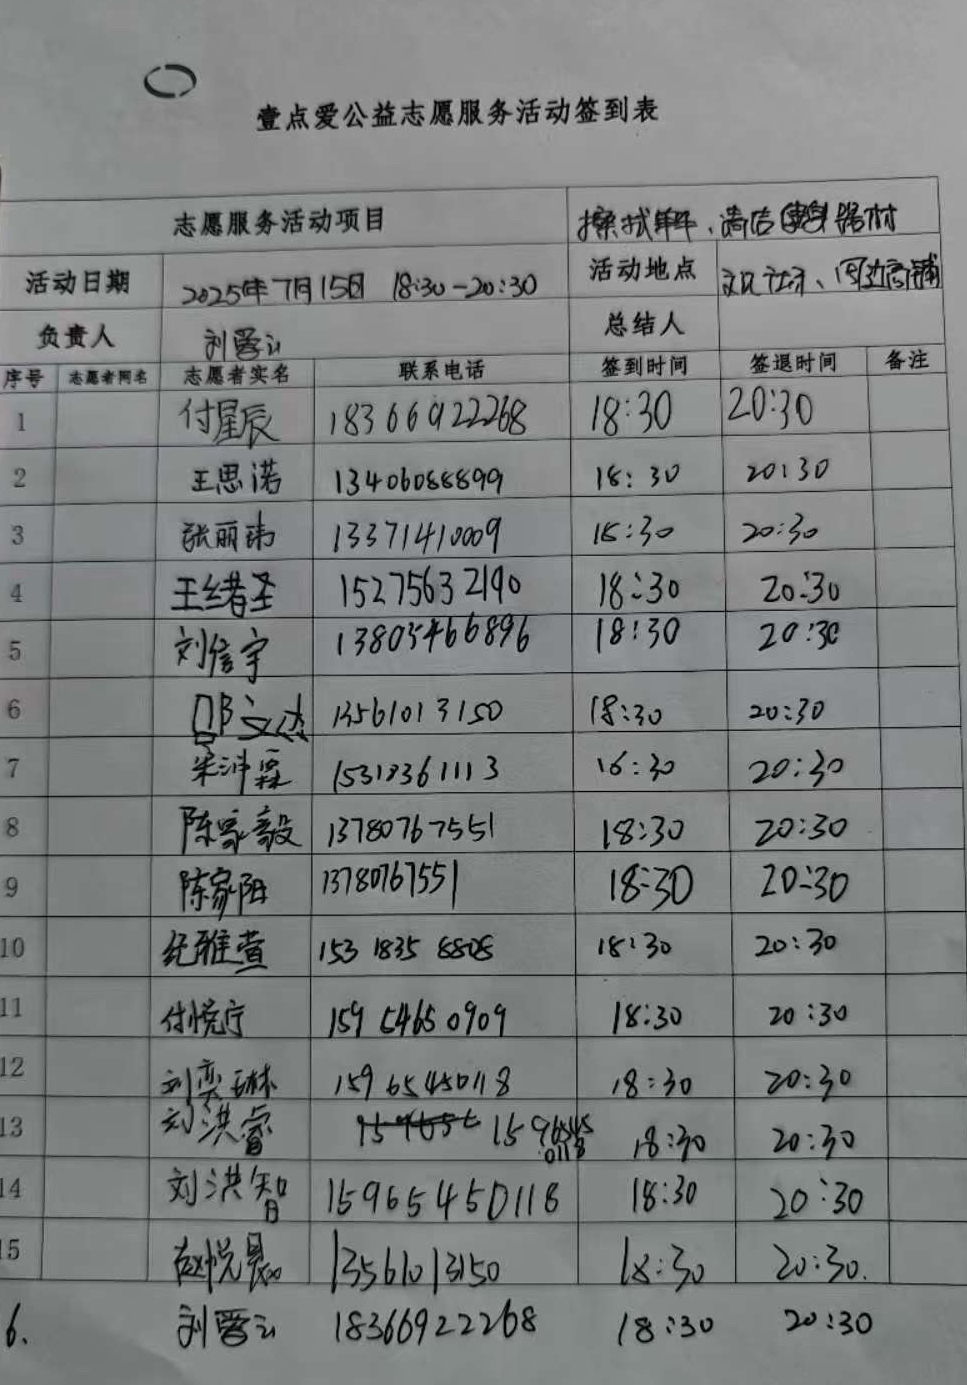 壹点爱公益志愿服务活动签到表
志愿服务活动项目 擦拭单车、清信
活动日期 2025年7月15日 18:30-20:30 活动地点 、周边商铺
负责人 刘蓉云 总结人
序号 志愿者网名 志愿者实名 联系电话 签到时间 签退时间 备注
1 付星辰 18366922268 18:30 20:30
2 王思诺 13406088899 18:30 20:30
3 张丽玮 13371410009 18:30 20:30
4 王绪圣 15275632190 18:30 20:30
5 刘信宇 13805466896 18:30 20:30
6 文杰 13561013150 18:30 20:30
7 宋沛霖 15318361113 16:30 20:30
8 陈家毅 13780767551 18:30 20:30
9 陈家阳 13780767551 18:30 20:30
10 纪雅萱 153 1835 8808 18:30 20:30
11 付悦宁 159 5465 0909 18:30 20:30
12 刘奕琳 15965450118 18:30 20:30
13 刘洪睿 15965450118 18:30 20:30
14 刘洪智 15965450118 18:30 20:30
15 赵悦晨 13561013150 18:30 20:30.
6. 刘蓉云 18366922268 18:30 20:30